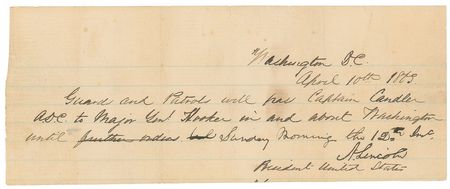 Washington D.C.
April 10th 1863
Guard and Patrols will pass Captain Candler
ADC to Major Genl Hooker in and about Washington
until further orders Sunday Morning the 12th Inst.
A. Lincoln
President United States